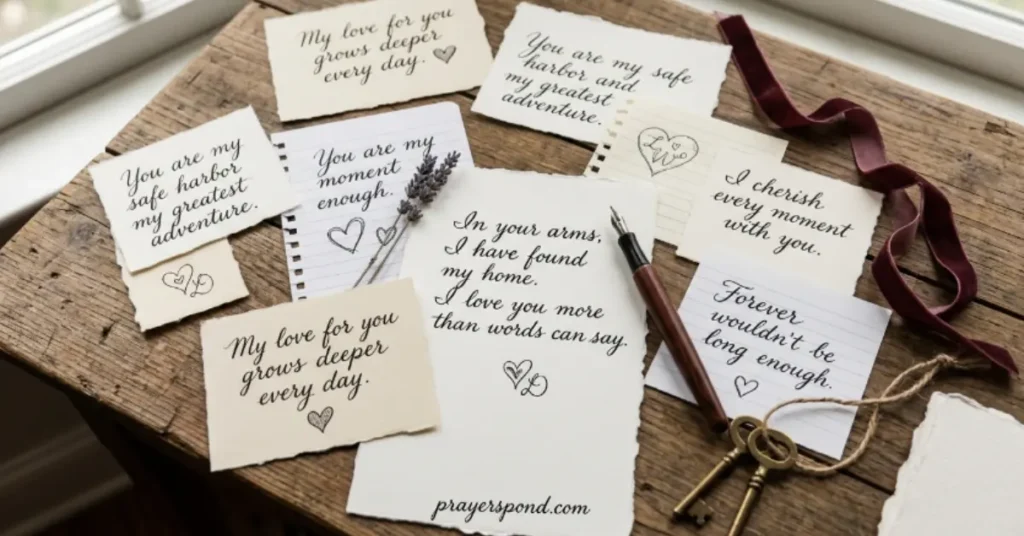 My love for you
grows deeper
every day.
You are my safe
harbor and
my greatest
adventure.
You are my
safe harbor
my greatest
adventure.
You are my
moment
enough.
I cherish
every moment
with you.
In your arms,
I have found
my home.
I love you more
than words can say.
Forever
wouldn't be
long enough.
My love for you
grows deeper
every day.
prayerspond.com